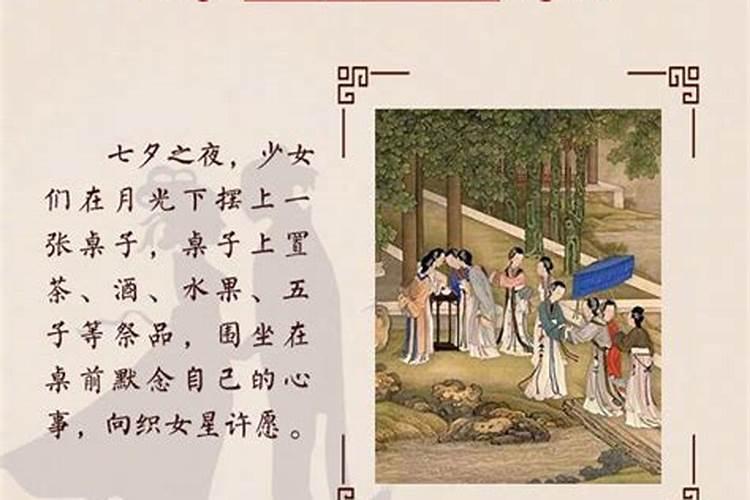 七夕之夜，少女
们在月光下摆上一
张桌子，桌子上置
茶、酒、水果、五
子等祭品，围坐在
桌前默念自己的心
事，向织女星许愿。